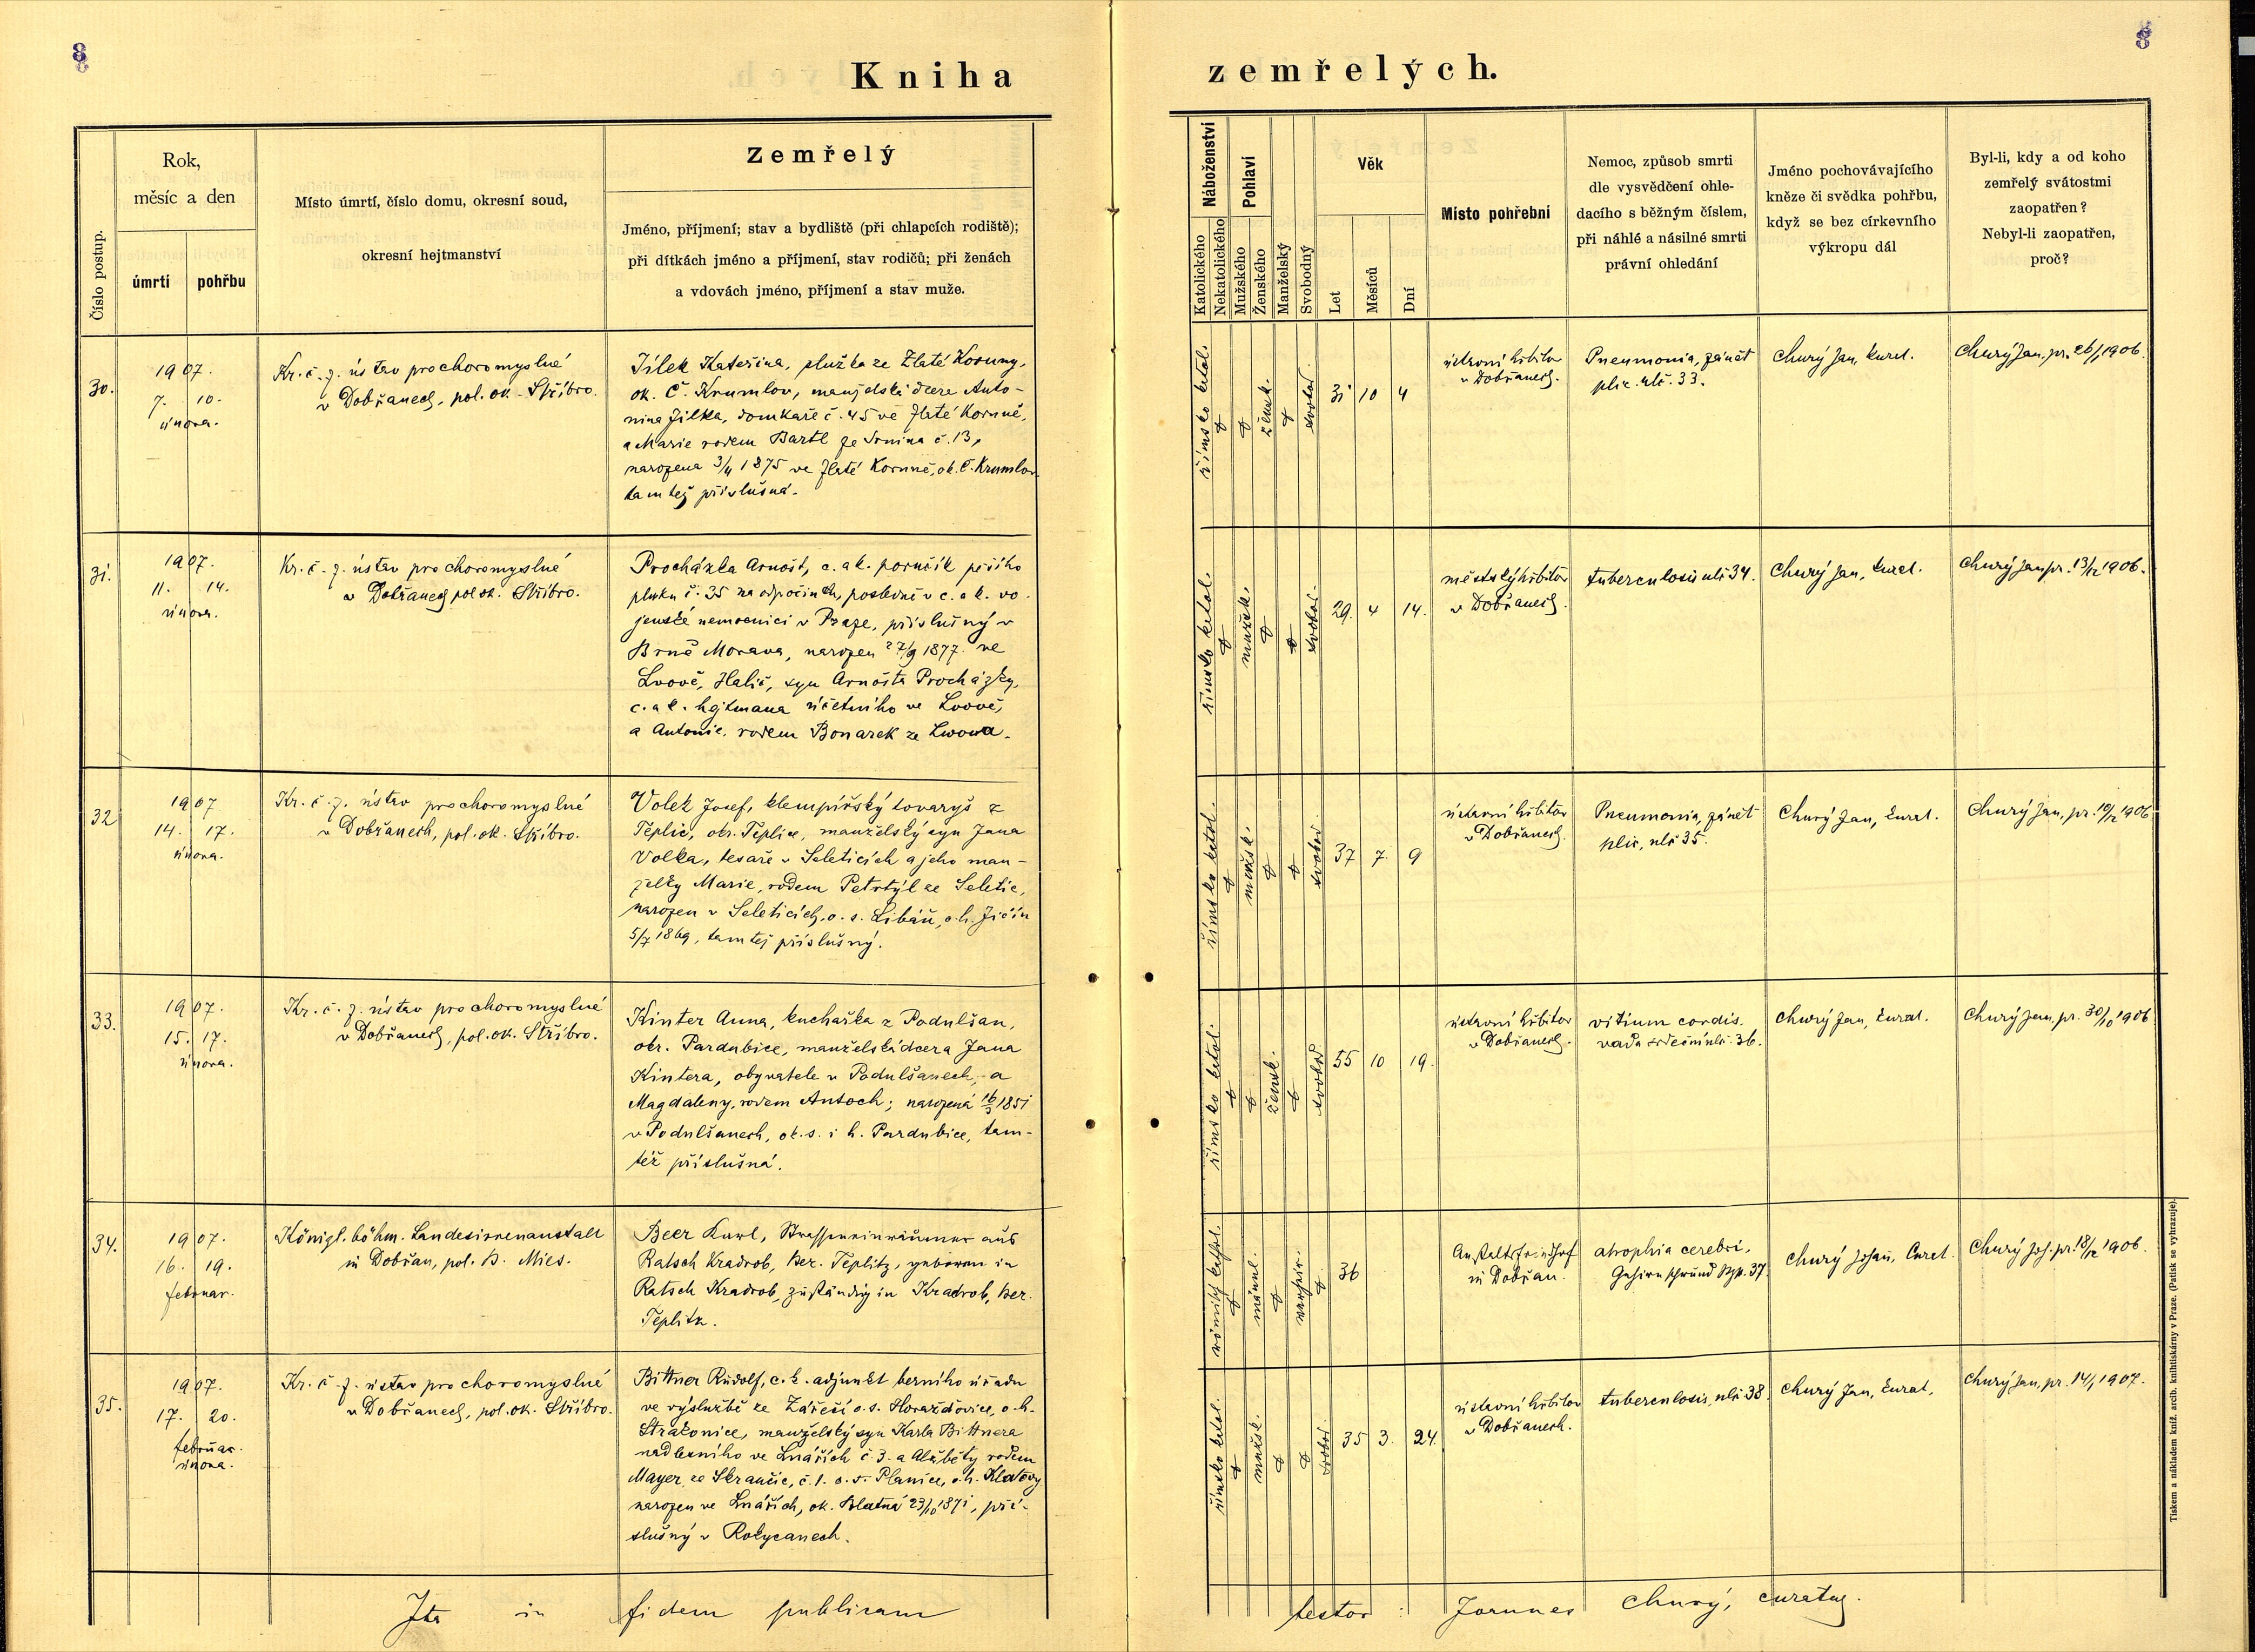 8
8
Kniha
zemřelých.
Číslo postup.
Rok,
měsíc a den
úmrtí
pohřbu
Místo úmrtí, číslo domu, okresní soud,
okresní hejtmanství
Zemřelý
Jméno, příjmení; stav a bydliště (při chlapcích rodiště);
při dítkách jméno a příjmení, stav rodičů; při ženách
a vdovách jméno, příjmení a stav muže.
Náboženství
Katolického
Nekatolického
Pohlaví
Mužského
Ženského
Manželský
Svobodný
Věk
Let
Měsíců
Dní
Místo pohřební
Nemoc, způsob smrti
dle vysvědčení ohle-
dacího s běžným číslem,
při náhlé a násilné smrti
právní ohledání
Jméno pochovávajícího
kněze či svědka pohřbu,
když se bez církevního
výkropu dál
Byl-li, kdy a od koho
zemřelý svátostmi
zaopatřen?
Nebyl-li zaopatřen,
proč?
30.
1907.
7. 10.
února.
Kr. č. z. ústav pro choromyslné
v Dobřanech, pol. ok. Stříbro.
Jílek Kateřina, služka ze Zlaté Koruny,
ok. Č. Krumlov, manželská dcera Anto-
nína Jílka, domkaře č. 45 ve Zlaté Koruně,
a Marie rodem Bartl ze Srnína č. 13,
narozena 3/4 1875 ve Zlaté Koruně, ok. Č. Krumlov
tamtéž příslušná.
římsko katol.
žensk.
svobod.
31 10 4
ústavní hřbitov
v Dobřanech.
Pneumonia, zánět
plic. uli č. 33.
Churý Jan, kurat.
Churý Jan, pr. 26/1 1906.
31.
1907.
11. 14.
února.
Kr. č. z. ústav pro choromyslné
v Dobřanech pol ok. Stříbro.
Procházka Arnošt, c. a k. poručík pěšího
pluku č. 35 na odpočinku, posledně v c. a k. vo-
jenské nemocnici v Praze, příslušný v
Brně Morava, narozen 27/9 1877 ve
Lvově, Halič, syn Arnošta Procházky,
c. a k. hejtmana účetního ve Lvově,
a Antonie, rodem Bonarek ze Lwowa.
římsko katol.
mužsk.
svobod.
29. 4 14.
městský hřbitov
v Dobřanech.
tuberculosis uli 34.
Churý Jan, kurat.
Churý Jan pr. 13/12 1906.
32
1907
14. 17.
února.
Kr. č. z. ústav pro choromyslné
v Dobřanech, pol. ok. Stříbro.
Volek Josef, klempířský tovaryš z
Teplic, okr. Teplice, manželský syn Jana
Volka, tesaře v Seleticích a jeho man-
želky Marie, rodem Petrtýl ze Seletic,
narozen v Seleticích, o. s. Libáň, o. h. Jičín
5/7 1869, tamtéž příslušný.
římsko katol.
mužsk.
svobod.
37 7. 9
ústavní hřbitov
v Dobřanech.
Pneumonia, zánět
plic, uli 35.
Churý Jan, kurat.
Churý Jan, pr. 10/12 1906
33.
1907.
15. 17.
února.
Kr. č. z. ústav pro choromyslné
v Dobřanech, pol. ok. Stříbro.
Kinter Anna, kuchařka z Podulšan,
okr. Pardubice, manželská dcera Jana
Kintera, obyvatele v Podulšanech, a
Magdaleny, rodem Antoch; narozená 16/3 1851
v Podulšanech, ok. s. i h. Pardubice, tam-
též příslušná.
římsko katol.
žensk.
svobod
55 10 19.
ústavní hřbitov
v Dobřanech.
vitium cordis.
vada srdeční uli. 36.
Churý Jan, kurat.
Churý Jan, pr. 30/10 1906
34.
1907.
16. 19.
februar.
Königl. böhm. Landesirrenanstalt
in Dobřan, pol. B. Mies.
Beer Karl, Strasseneinräumer aus
Ratsch Kradrob, Bez. Teplitz, geboren in
Ratsch Kradrob, zuständig in Kradrob, Bez.
Teplitz.
römisch kathol.
männl.
36
Anstaltsfriedhof
in Dobřan.
atrophia cerebri,
Gehirnschwund 37.
Churý Johann, Curat.
Churý Joh. pr. 18/12 1906.
35.
1907.
17. 20.
februar.
února.
Kr. č. z. ústav pro choromyslné
v Dobřanech, pol. ok. Stříbro.
Bittner Rudolf, c. k. adjunkt berního úřadu
ve výslužbě ze Zářečí o. s. Horažďovice, o. h.
Strakonice, manželský syn Karla Bittnera
nadlesního ve Lnářích č. 3. a Alžběty rodem
Mayer, ze Skránčic, č. 1. o. s. Planice, o. h. Klatovy
narozen ve Lnářích, ok. Blatná 23/10 1871, pří-
slušný v Rokycanech.
římsko katol.
mužsk.
svobod.
35 3. 24.
ústavní hřbitov
v Dobřanech.
tuberculosis, uli 38.
Churý Jan, kurat,
Churý Jan, pr. 14/1 1907.
Ita in fidem publicam testor: Joannes Churý, curatus.
Tiskem a nákladem kníž. arcib. knihtiskárny v Praze. (Patisk se vyhrazuje).